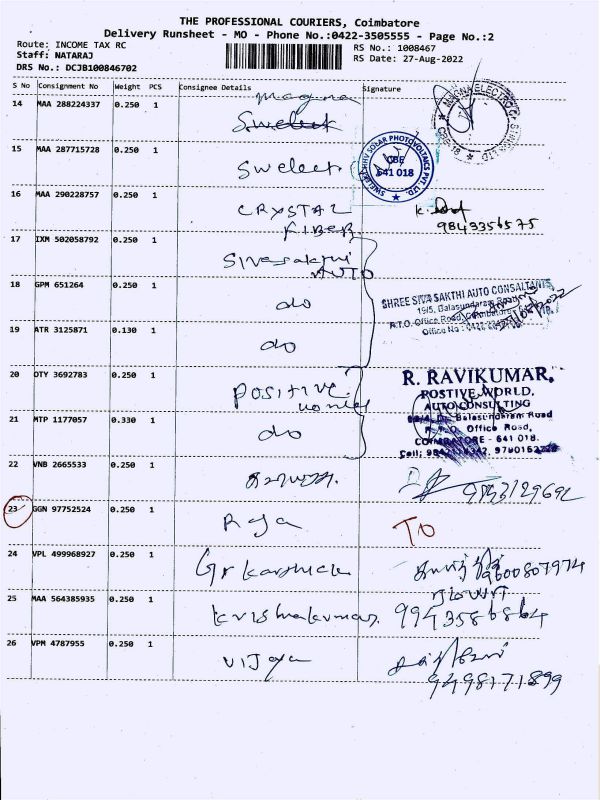 THE PROFESSIONAL COURIERS, Coimbatore
Delivery Runsheet - MO - Phone No.:0422-3505555 - Page No.:2
Route: INCOME TAX RC
RS No.: 1008467
Staff: NATARAJ
RS Date: 27-Aug-2022
DRS No.: DCJB100846702
S No Consignment No Weight PCS Consignee Details Signature
14 MAA 288224337 0.250 1 Magna
Swelect
15 MAA 287715728 0.250 1 Swelect
SWELECT SOLAR PHOTOVOLTAICS PVT. LTD.
CBE
641 018
16 MAA 290228757 0.250 1 CRYSTAL
FIBER
9843356575
17 IXM 502058792 0.250 1 Sivasakthi
AUTO
18 GPM 651264 0.250 1 do
SHREE SIVA SAKTHI AUTO CONSALTANTS
19/5, Balasundaram Road
R.T.O. Office Road, Coimbatore
19 ATR 3125871 0.130 1 do
20 OTY 3692783 0.250 1 POSITIVE
R. RAVIKUMAR,
POSTIVE WORLD,
AUTO CONSULTING
Balasundaram Road
R.T.O. Office Road,
COIMBATORE - 641 018.
21 MTP 1177057 0.330 1 do
22 VNB 2665533 0.250 1
23 GGN 97752524 0.250 1 Raja TO
24 VPL 499968927 0.250 1 Gr Karthick
9600807974
25 MAA 564385935 0.250 1 Krishnakumar 9943586864
26 VPM 4787955 0.250 1 Vijaya
9498171899